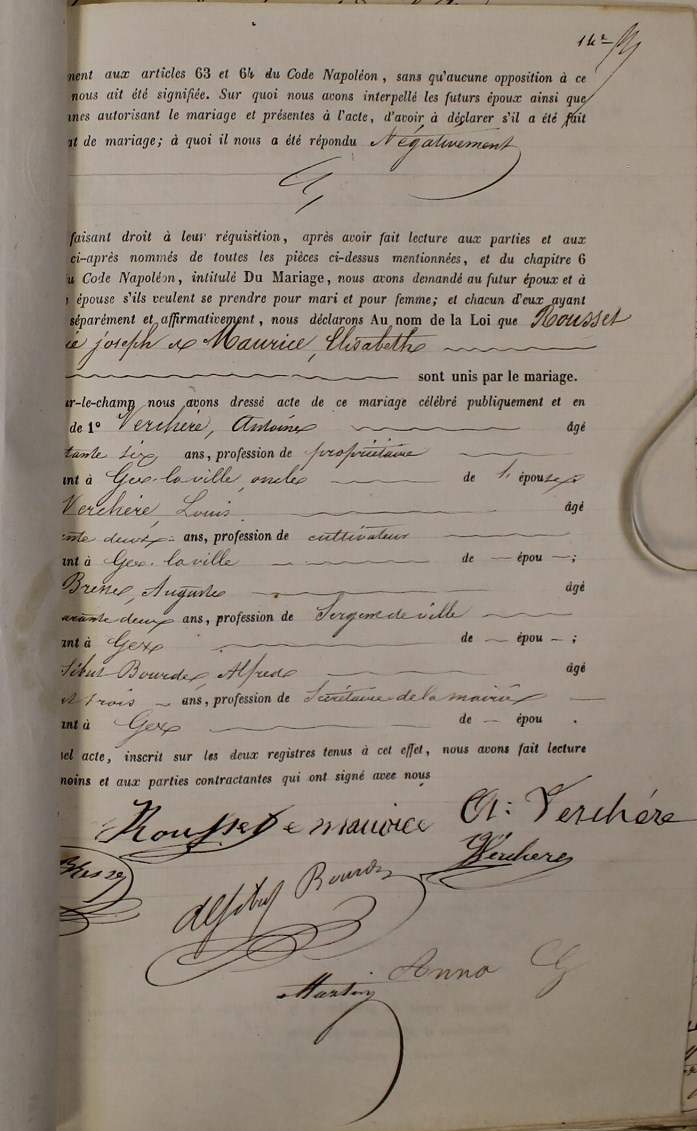 14e
ment aux articles 63 et 64 du Code Napoléon, sans qu'aucune opposition à ce
nous ait été signifiée. Sur quoi nous avons interpellé les futurs époux ainsi que
nes autorisant le mariage et présentes à l'acte, d'avoir à déclarer s'il a été fait
at de mariage; à quoi il nous a été répondu Négativement
faisant droit à leur réquisition, après avoir fait lecture aux parties et aux
ci-après nommés de toutes les pièces ci-dessus mentionnées, et du chapitre 6
u Code Napoléon, intitulé Du Mariage, nous avons demandé au futur époux et à
épouse s'ils veulent se prendre pour mari et pour femme; et chacun d'eux ayant
séparément et affirmativement, nous déclarons Au nom de la Loi que Rousset
ie joseph & Maurice, Elisabeth
sont unis par le mariage.
ur-le-champ nous avons dressé acte de ce mariage célébré publiquement et en
de 1° Verchère, Antoine âgé
tante six ans, profession de propriétaire
ant à Gex-la ville, oncle de l'épouse
Verchère, Louis âgé
ante deux ans, profession de cultivateur
ant à Gex-la ville de — épou —;
Bresse, Auguste âgé
arante deux ans, profession de Sergent de ville
ant à Gex de — épou —;
Bourde, Alfred âgé
trois ans, profession de Secrétaire de la mairie
ant à Gex de — épou .
uel acte, inscrit sur les deux registres tenus à cet effet, nous avons fait lecture
moins et aux parties contractantes qui ont signé avec nous
Rousset e maurice At: Verchére
Bresse Verchere
Bourde
Martin Anna G